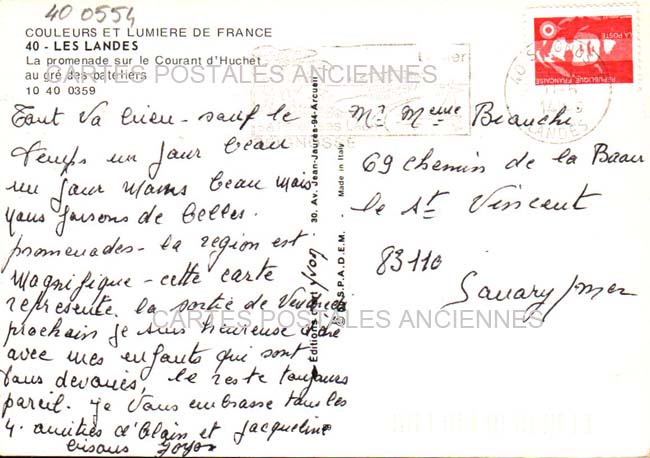 40 0554
COULEURS ET LUMIERE DE FRANCE
40 - LES LANDES
La promenade sur le Courant d'Huchet
au gré des bateliers
10 40 0359
CARTES POSTALES ANCIENNES
Tout va bien - sauf le
temps un jour beau
un jour moins beau mais
nous faisons de belles
promenades - la région est
magnifique - cette carte
représente la sortie de
prochain je suis heureuse
avec mes enfants qui sont
tous dévoués, le reste toujours
pareil. je vous embrasse tous les
4. amitiés d'Alain et Jacqueline
bisous
Editions d'art yvon
30. Av. Jean-Jaurès-94-Arcueil
© D.I.S.P.A.D.E.M. - Made in Italy
RÉPUBLIQUE FRANÇAISE
LA POSTE
40
LANDES
Mr Meme Bianchi
69 chemin de la Baou
le St Vincent
83110
Sanary s/mer
CARTES POSTALES ANCIENNES